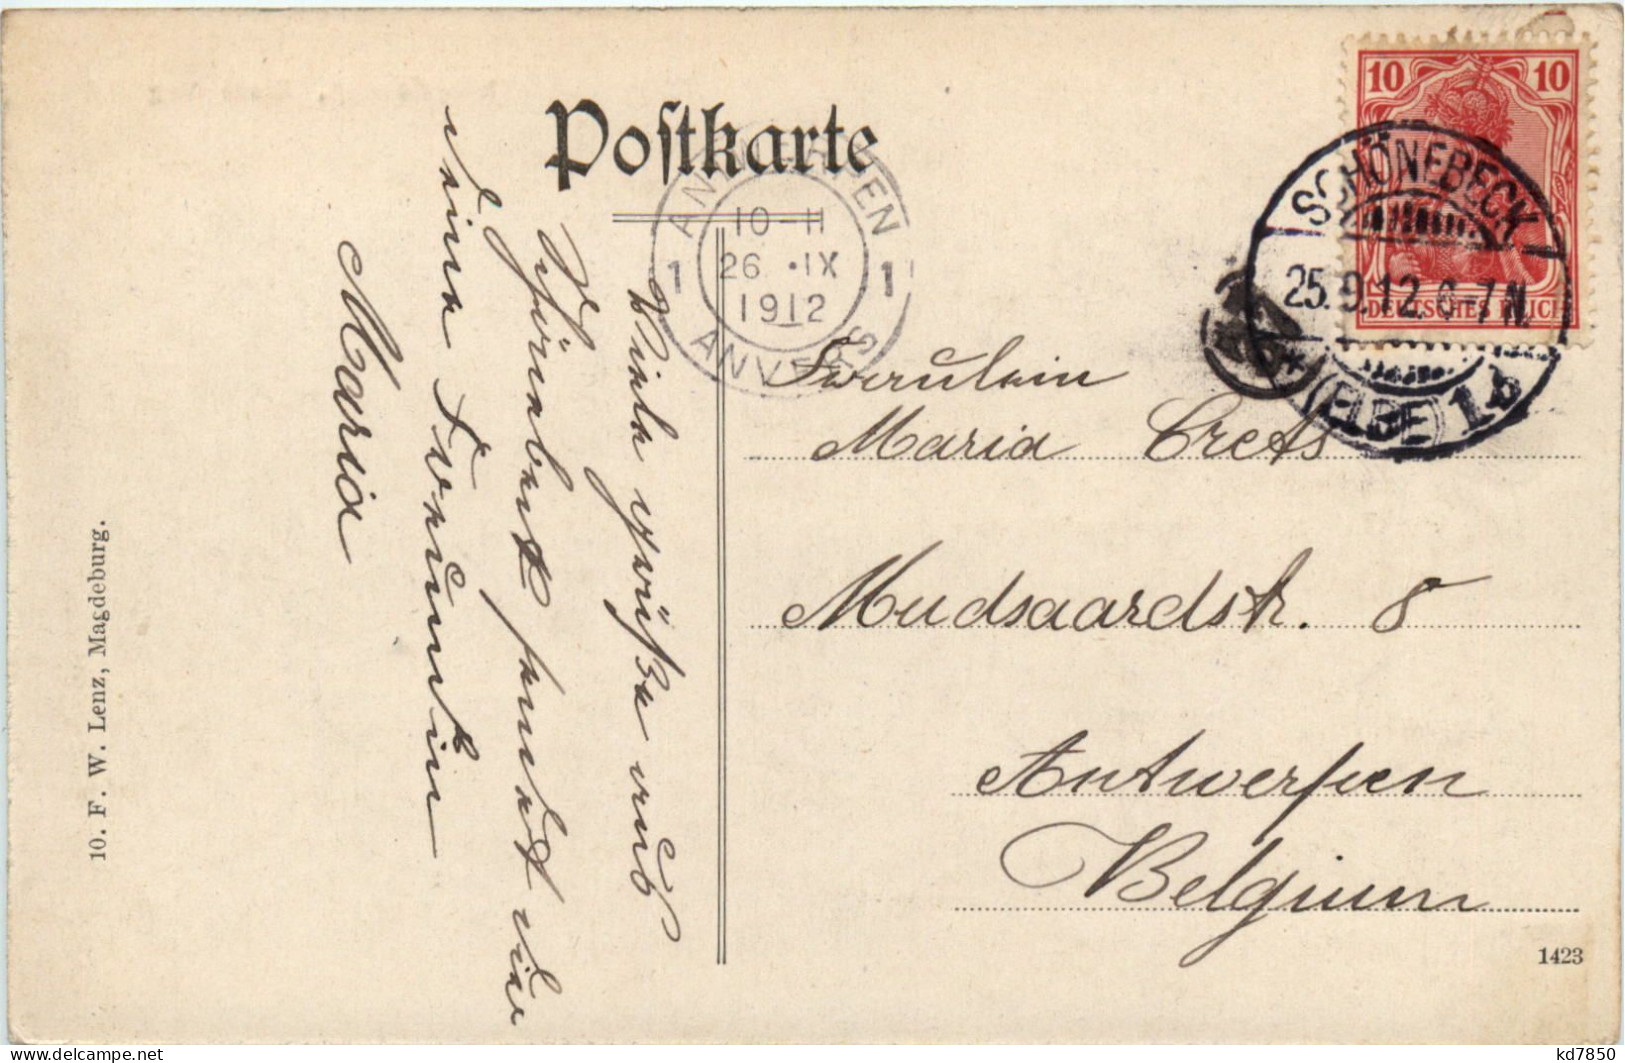 Postkarte
10 10
DEUTSCHES REICH
SCHÖNEBECK
25.9.12.6-7N.
(ELBE) 1b
ANTWERPEN
10-11
1 26 .IX 1
1912
ANVERS
Viele Grüße aus
Schönebeck sendet die
deine Freundin
Maria
Fräulein
Maria Crets
Mudsaardstr. 8
Antwerpen
Belgium
10. F. W. Lenz, Magdeburg.
1423
kd7850